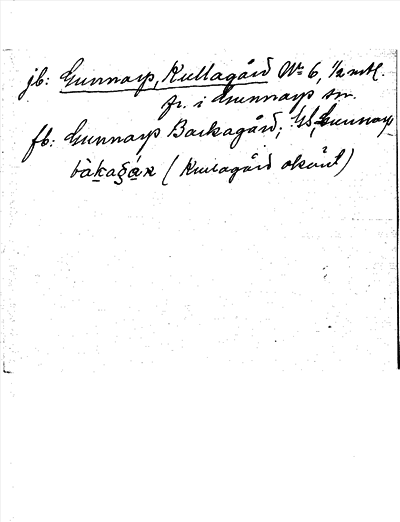 jb: Gunnarp, Kullagård No 6, 1/2 mtl.
fr. i Gunnarps sn.
fb: Gunnarps Backagård; GS, Gunnarp
bàkagák (Kullagård okänt)